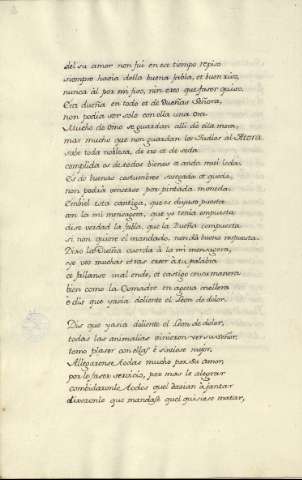 del su amor non fui en ese tiempo repiso
siempre havia della buena fabla, et buen riso,
nunca al por mi fiso, nin creo que faser quiso.
Era dueña en todo et de Dueñas Señora,
non podia ser solo con ella una ora
Mucho de Ome se guardan allí dó ella mora,
mas mucho que non guardan los Judíos la Atora
sabe toda noblesa, de oro et de seda
complida es de todos bienes et anda mui leda,
Es de buenas costumbres sosegada et queda,
non podria venserse por pintada moneda.
Embiel esta cantiga, que es deyuso puesta
con la mi mensagera, que yo tenia empuesta
dise verdad la fabla, que la Dueña compuesta
si non quiere el mandado, non dá buena respuesta.
Dixo la Dueña cuerda á la mi mensagera,
yo veo muchas otras creer á tu palabra
et fallanse mal ende, et castigo en su manera
bien como la Comadre en agena mellera
é dis que yasia doliente el Leon de dolor.
Dis que yasia doliente el Leon de dolor,
todas las animalias vinieron ver su Señor,
tomo plaser con ellas é sintiose mejor,
Allegranse todas mucho por su amor,
por le faser servicio, por mas le alegrar
combidaronle todas quel darian á jantar
dixeronle que mandase quel quisiese matar,